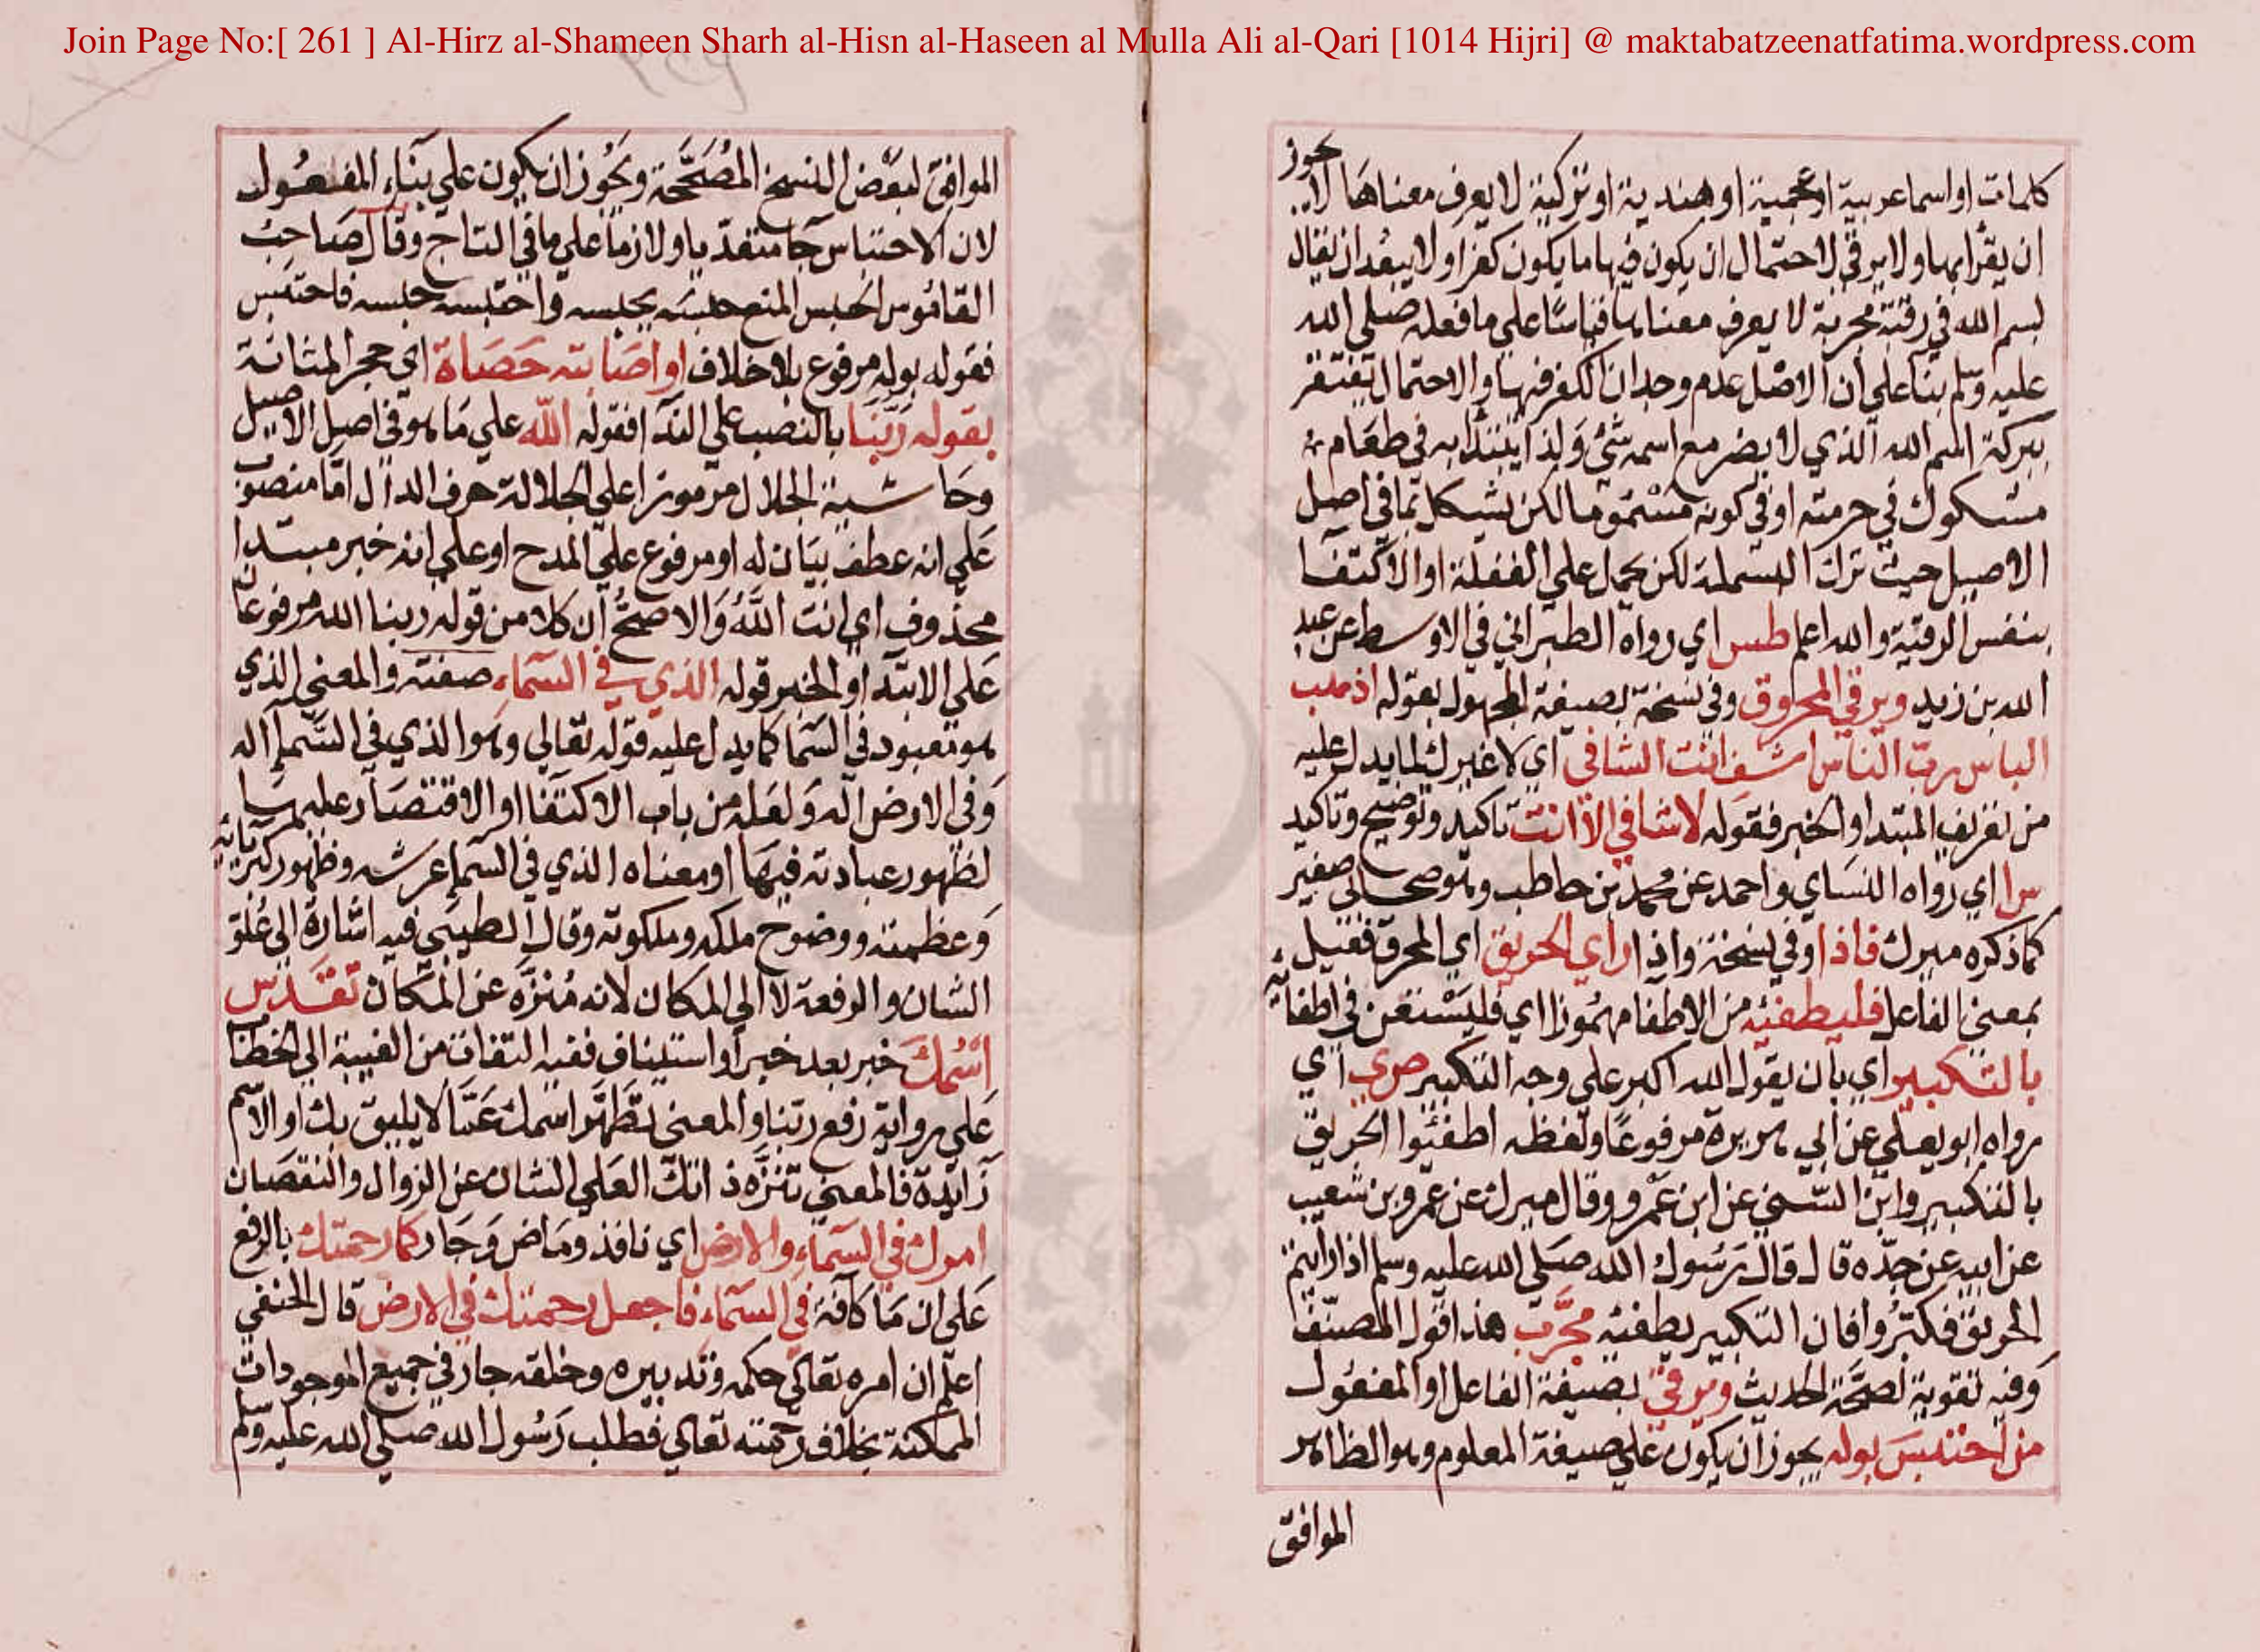 Join Page No:[ 261 ] Al-Hirz al-Shameen Sharh al-Hisn al-Haseen al Mulla Ali al-Qari [1014 Hijri] @ maktabatzeenatfatima.wordpress.com
كلمات او اسما عربية او عجمية او هندية او تركية لا يعرف معناها لا يجوز
ان يقرا بها ولا يرقي لاحتمال ان يكون فيها ما يكون كفرا ولا يبعد ان يقال
بسم الله في رقية مجربة لا يعرف معناها قياسًا على ما فعله صلى الله
عليه وسلم بنا على ان الاصل عدم وجدان الكفر فيها والاحتمال يغتفر
ببركة اسم الله الذي لا يضر مع اسمه شئ ولذا يبتدا به في طعام
مشكوك في حرمته او في كونه مسموما لكن يشكل بما في اصل
الاصيل حيث ترك البسملة لكن يحمل على الغفلة او الاكتفا
بنفس الرقية والله اعلم طس اي رواه الطبراني في الاوسط عن عبد
الله بن زيد ويرقي المحروق وفي نسخة بصيغة المجهول بقوله اذهب
الباس رب الناس اشف انت الشافي اي لا غيرك لما يدل عليه
من تعريف المبتدا والخبر فقوله لا شافي الا انت تاكيد وتوضيح وتاكيد
س ا اي رواه النساي واحمد عن محمد بن حاطب وهو صحابي صغير
كما ذكره ميرك فاذا وفي نسخة واذا راي الحريق اي المحرق فعيل
بمعنى الفاعل فليطفئه من الاطفا مهموزا اي فليستعن في اطفائه
بالتكبير اي بان يقول الله اكبر على وجه التكبير ص ي اي
رواه ابو يعلي عن ابي هريرة مرفوعًا ولفظه اطفئوا الحريق
بالتكبير وابن السني عن ابن عمرو وقال ميرك عن عمرو بن شعيب
عن ابيه عن جده قال قال رسول الله صلى الله عليه وسلم اذا رايتم
الحريق فكبروا فان التكبير يطفئه مجرب هذا قول المصنف
وفيه تقوية لصحة الحديث ويرقي بصيغة الفاعل او المفعول
من احتبس بوله يجوز ان يكون على صيغة المعلوم وهو الظاهر
الموافق
الموافق لبعض النسخ المصححة ويجوز ان يكون على بناء المفعول
لان الاحتباس جا متعديا ولازما على ما في التاج وقال صاحب
القاموس الحبس المنع حبسه يحبسه واحتبسه حبسه فاحتبس
فقوله بوله مرفوع بلا خلاف او اصابته حصاة اي حجر المثانة
بقوله ربنا بالنصب على الندا فقوله الله على ما هو في اصل الاصيل
وحاشية الجلال مرموزا على الجلالة حرف الدال اما منصوب
على انه عطف بيان له او مرفوع على المدح او على انه خبر مبتدا
محذوف اي انت الله والاصح ان كلا من قوله ربنا الله مرفوعا
على الابتدا والخبر قوله الذي في السماء صفته والمعنى الذي
هو معبود في السما كما يدل عليه قوله تعالى وهو الذي في السماء اله
وفي الارض اله ولعله من باب الاكتفا او الاقتصار عليها
لظهور عبادته فيها او معناه الذي في السماء عرشه وظهور كبريائه
وعظمته ووضوح ملكه وملكوته وقال الطيبي فيه اشارة الى علو
الشان والرفعة لا الى المكان لانه منزه عن المكان تقدس
اسمك خبر بعد خبر او استيناف ففيه التفات من الغيبة الى الخطاب
على رواية رفع ربنا والمعنى تطهر اسمك عما لا يليق بك او الاسم
زايدة فالمعنى تنزه ذاتك العلي الشان عن الزوال والنقصان
امرك في السماء والارض اي نافذ وماض وجار كما رحمتك بالرفع
على ان ما كافة في السماء فاجعل رحمتك في الارض قال الحنفي
اعلم ان امره تعالى حكمه وتدبيره وخلقه جار في جميع الموجودات
الممكنة بخلاف رحمته تعالى فطلب رسول الله صلى الله عليه وسلم